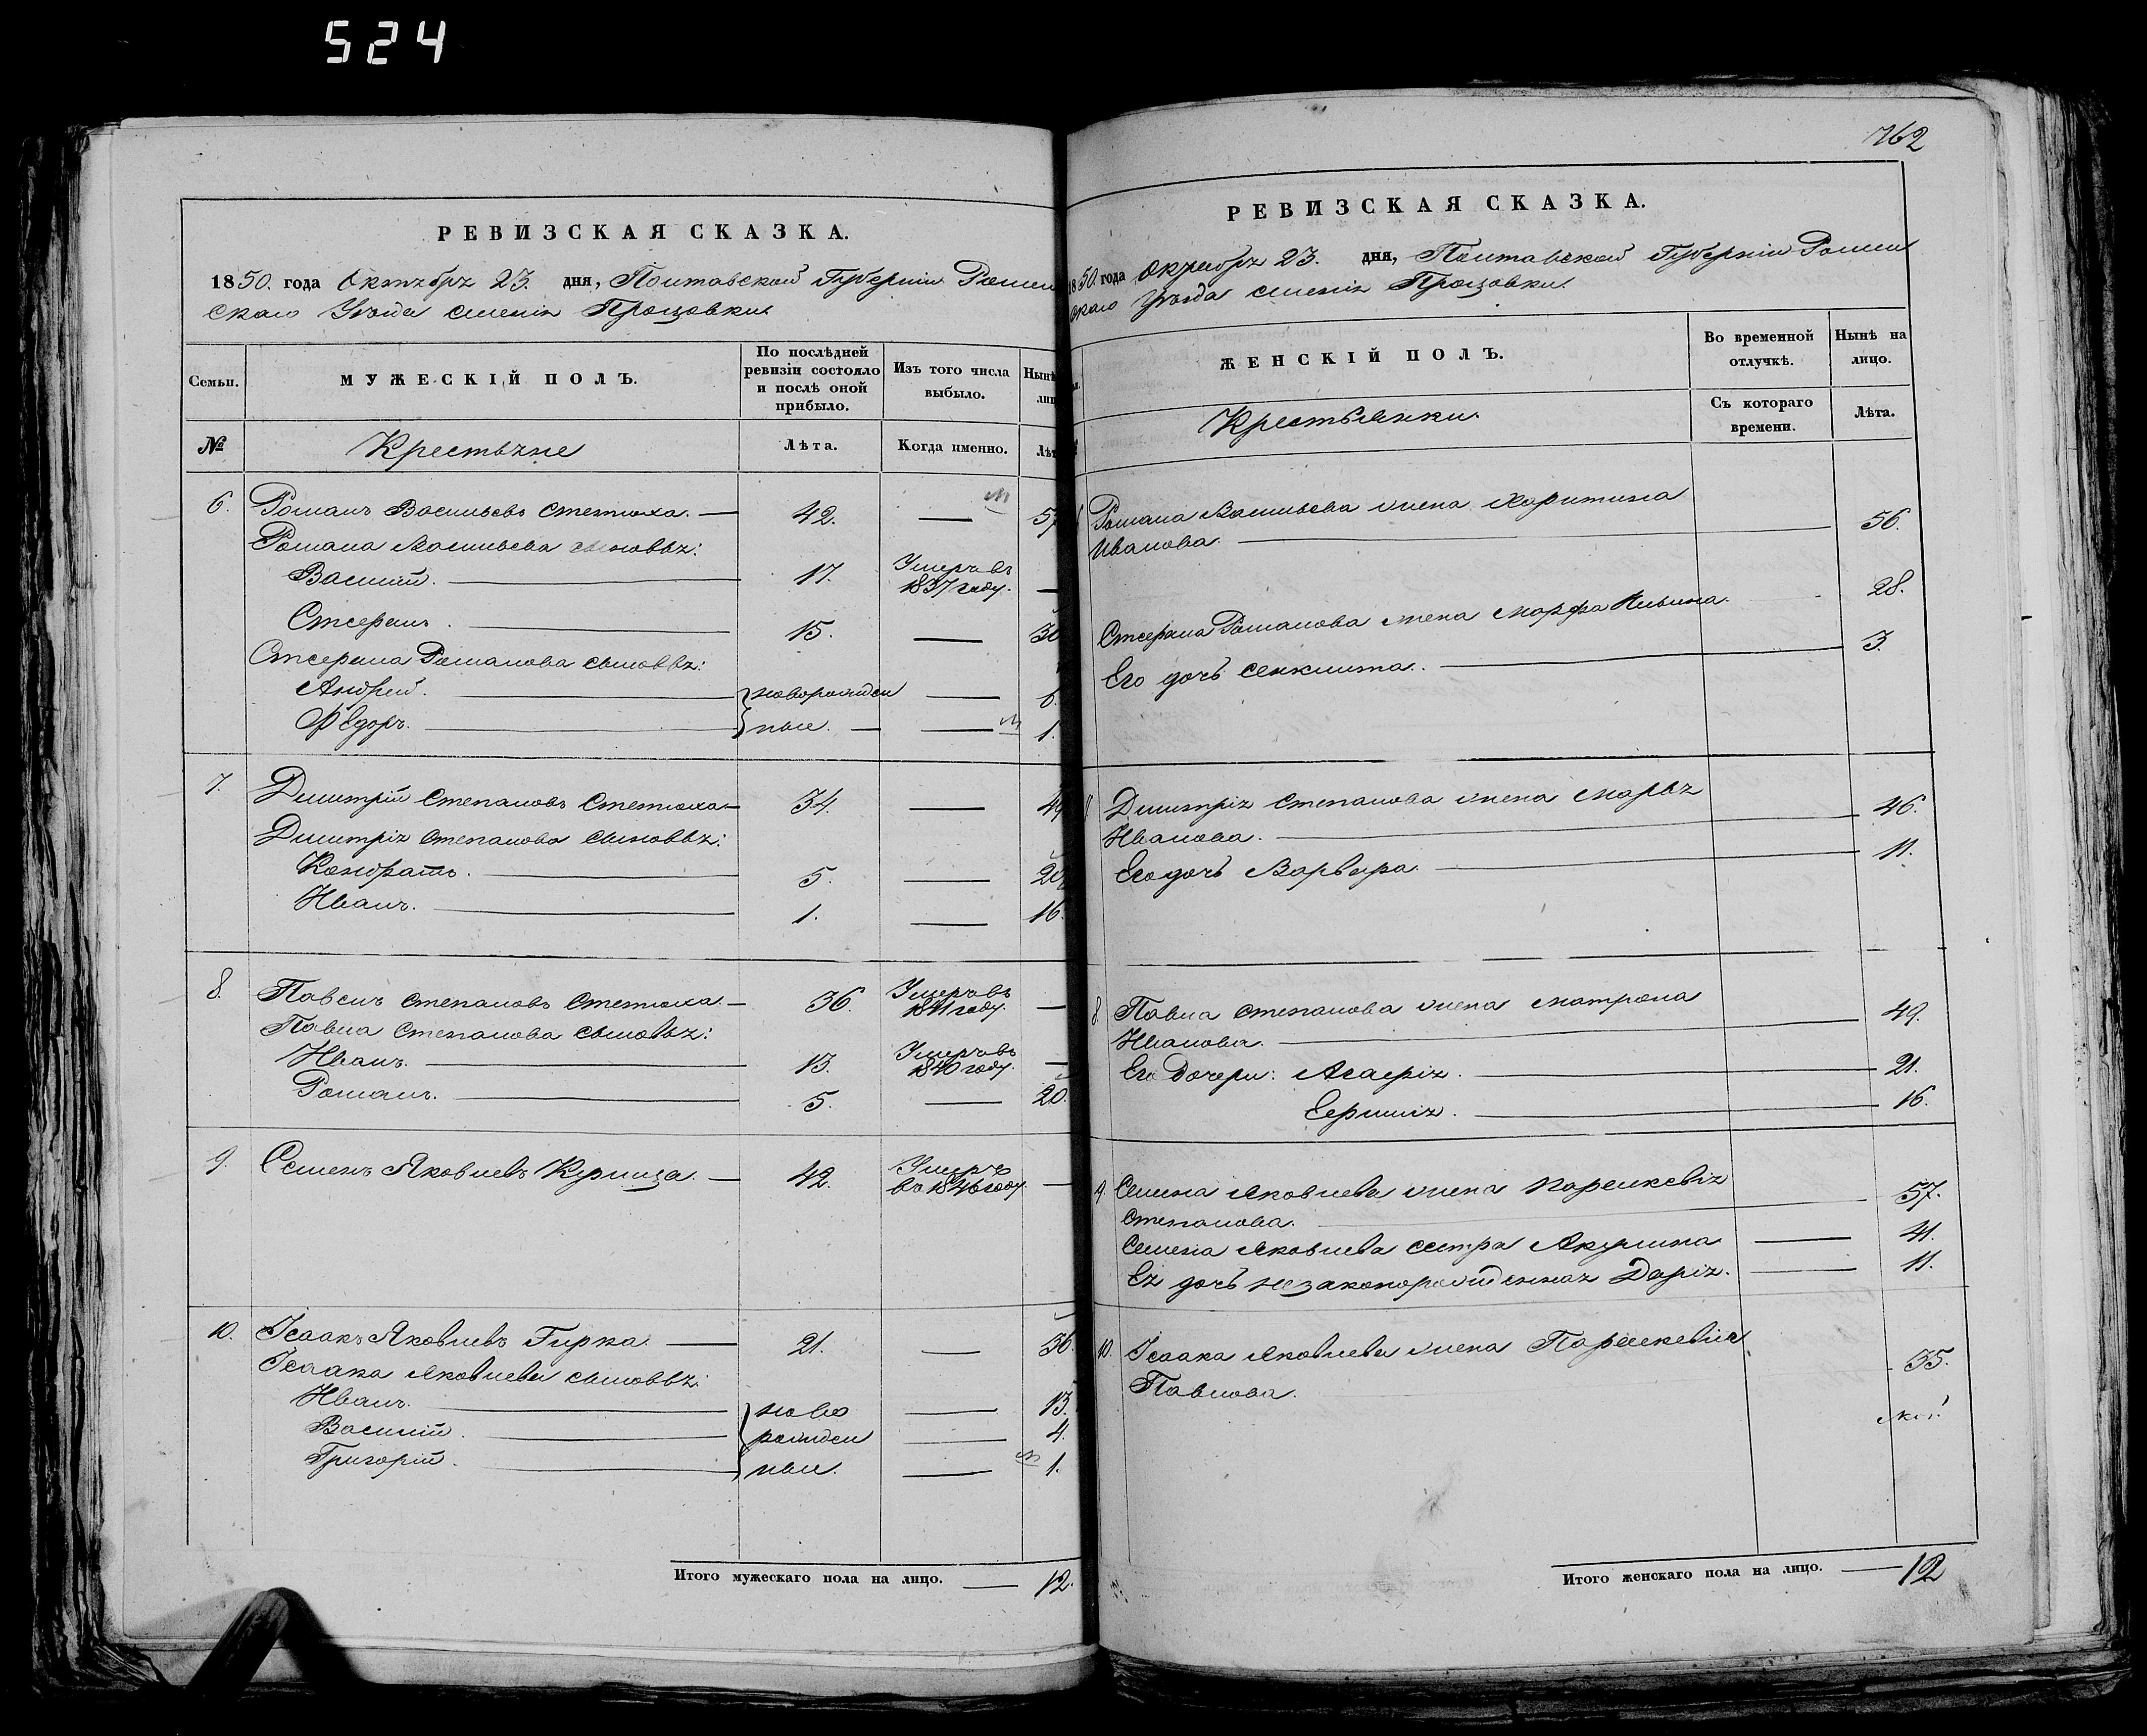 524
РЕВИЗСКАЯ СКАЗКА.
1850. года Октября 23. дня, Полтавской Губернии Ромен
скаго Уезда имения Процовки
Семьи.
МУЖЕСКІЙ ПОЛЪ.
По послѣдней ревизіи состояло и послѣ оной прибыло.
Изъ того числа выбыло.
Нынѣ
лиц
№
Крестьяне
Лѣта.
Когда именно.
Лѣт
6. Романъ Васильевъ Стетюха. — 42. — 57
Романа Васильева сыновья:
Василій. — 17. Умеръ въ 1837 году. —
Стефанъ. — 15. — 30
Стефана Романова сыновья:
Андрей. — новорожден — 6.
Ѳедоръ. — ные. — — 1.
7. Димитрій Степановъ Стетюха — 34. — 49
Димитрія Степанова сыновья:
Кондратъ. — 5. — 20
Иванъ. — 1. — 16.
8. Павелъ Степановъ Стетюха — 36. Умеръ въ 1841 году. —
Павла Степанова сыновья:
Иванъ. — 13. Умеръ въ 1840 году. —
Романъ. — 5. — 20.
9. Семенъ Яковлевъ Курица. — 42. Умеръ въ 1846 году —
10. Ісаакъ Яковлевъ Гирка. — 21. — 36.
Ісаака Яковлева сыновья:
Иванъ. — ново — 13.
Василій. — рожден — 4.
Григорій. — ные. — 1.
Итого мужескаго пола на лицо. — 12.
762
РЕВИЗСКАЯ СКАЗКА.
1850. года Октября 23. дня, Полтавской Губерніи Ромен
скаго Уезда имения Процовки
ЖЕНСКІЙ ПОЛЪ.
Во временной отлучкѣ.
Нынѣ на лицо.
Крестьянки.
Съ котораго времени.
Лѣта.
Романа Васильева жена Харитина
Иванова. — 56.
Стефана Романова жена Марфа Ильина. 28.
Его дочь Секлита. — 3.
Димитрія Степанова жена Марья
Иванова. — 46.
Его дочь Варвара — 11.
8. Павла Степанова жена Матрона
Иванова. — 49.
Его дочери: Агафія. — 21.
Ефимія. — 16.
9. Семена Яковлева жена Параскевія
Степанова. — 57.
Семена Яковлева сестра Акулина — 41.
Ея дочь незаконорожденная Дарія. — 11.
10. Ісаака Яковлева жена Параскевія
Павлова. 35.
Итого женскаго пола на лицо. — 12